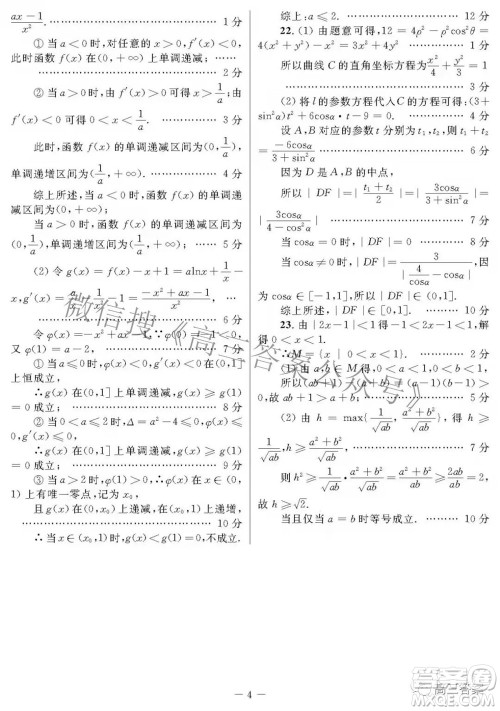 ax－1
x². ……………………………… 1 分
① 当 a＜0 时，对任意的 x＞0，f′(x)＜0，
此时函数 f(x) 在 (0，＋∞) 上单调递减；……
……………………………… 2 分
② 当 a＞0 时，由 f′(x)＞0 可得 x＞1/a，由
f′(x)＜0 可得 0＜x＜1/a，……………… 3 分
此时，函数 f(x) 的单调递减区间为 (0，1/a)，
单调递增区间为 (1/a，＋∞). …………… 4 分
综上所述，当 a＜0 时，函数 f(x) 的单调递减
区间为 (0，＋∞)；
当 a＞0 时，函数 f(x) 的单调递减区间为
(0，1/a)，单调递增区间为 (1/a，＋∞). …… 5 分
(2) 令 g(x)＝f(x)－x＋1＝alnx＋1/x－
x，g′(x)＝a/x－1－1/x²＝(－x²＋ax－1)/x². …………
……………………………… 6 分
令 φ(x)＝－x²＋ax－1，∵φ(0)＝－1＜0，
又 φ(1)＝a－2. …………… 7 分
① 当 a≤0 时，φ(x)＜0，g′(x)＜0 在 (0，1]
上恒成立，
∴g(x) 在 (0，1] 上单调递减，g(x)≥g(1)
＝0，成立. …………… 8 分
② 当 0＜a≤2 时，Δ＝a²－4≤0，∴φ(x)≤0，
∴g(x) 在 (0，1] 上单调递减，g(x)≥g(1)
＝0，成立. …………… 9 分
③ 当 a＞2 时，φ(1)＞0，∴φ(x) 在区间 (0，
1) 上有唯一零点，记为 x₀，
且 g(x) 在 (0，x₀) 上递减，在 (x₀，1) 上递增，
……………………………… 10 分
∴当 x∈(x₀，1) 时，g(x)＜g(1)＝0，不成立.
综上：a≤2. …………… 12 分
22. (1) 由题意可得，12＝4ρ²－ρ²cos²θ＝
4(x²＋y²)－x²＝3x²＋4y²，…………… 1 分
所以曲线 C 的直角坐标方程为 x²/4＋y²/3＝1
……………………………… 3 分
(2) 将 l 的参数方程代入 C 的方程可得：(3＋
sin²α)t²＋6tcosα－9＝0. …………… 4 分
设 A，B 对应的参数 t 分别为 t₁，t₂，则 t₁＋t₂
＝－6cosα/(3＋sin²α). …………… 6 分
因为 D 是 A，B 的中点，
所以 |DF|＝|(t₁＋t₂)/2|＝|3cosα/(3＋sin²α)|＝
|3cosα/(4－cos²α)|. …………… 7 分
当 cosα＝0 时，|DF|＝0 …………… 8 分
当 cosα≠0 时，|DF|＝3/|4/cosα－cosα|，
因为 cosα∈[－1，1]，所以 |DF|∈(0，1].
综上所述，|DF|∈[0，1]. …………… 10 分
23. 由 |2x－1|＜1 得 －1＜2x－1＜1，解
得 0＜x＜1.
∴M＝{x｜0＜x＜1}. …………… 2 分
(1) 由 a，b∈M，得 0＜a＜1，0＜b＜1，
所以 (ab＋1)－(a＋b)＝(a－1)(b－1)＞
0，故 ab＋1＞a＋b. …………… 5 分
(2) 由 h＝max{2/√ab，(a²＋b²)/√ab}，得 h≥
2/√ab，h≥(a²＋b²)/√ab，…………… 7 分
则 h²≥2/√ab·(a²＋b²)/√ab＝2(a²＋b²)/ab≥2·2ab/ab＝4
当且仅当 a＝b 时等号成立. …………… 10 分
— 4 —
微信搜《高三答案公众号》
高三答案